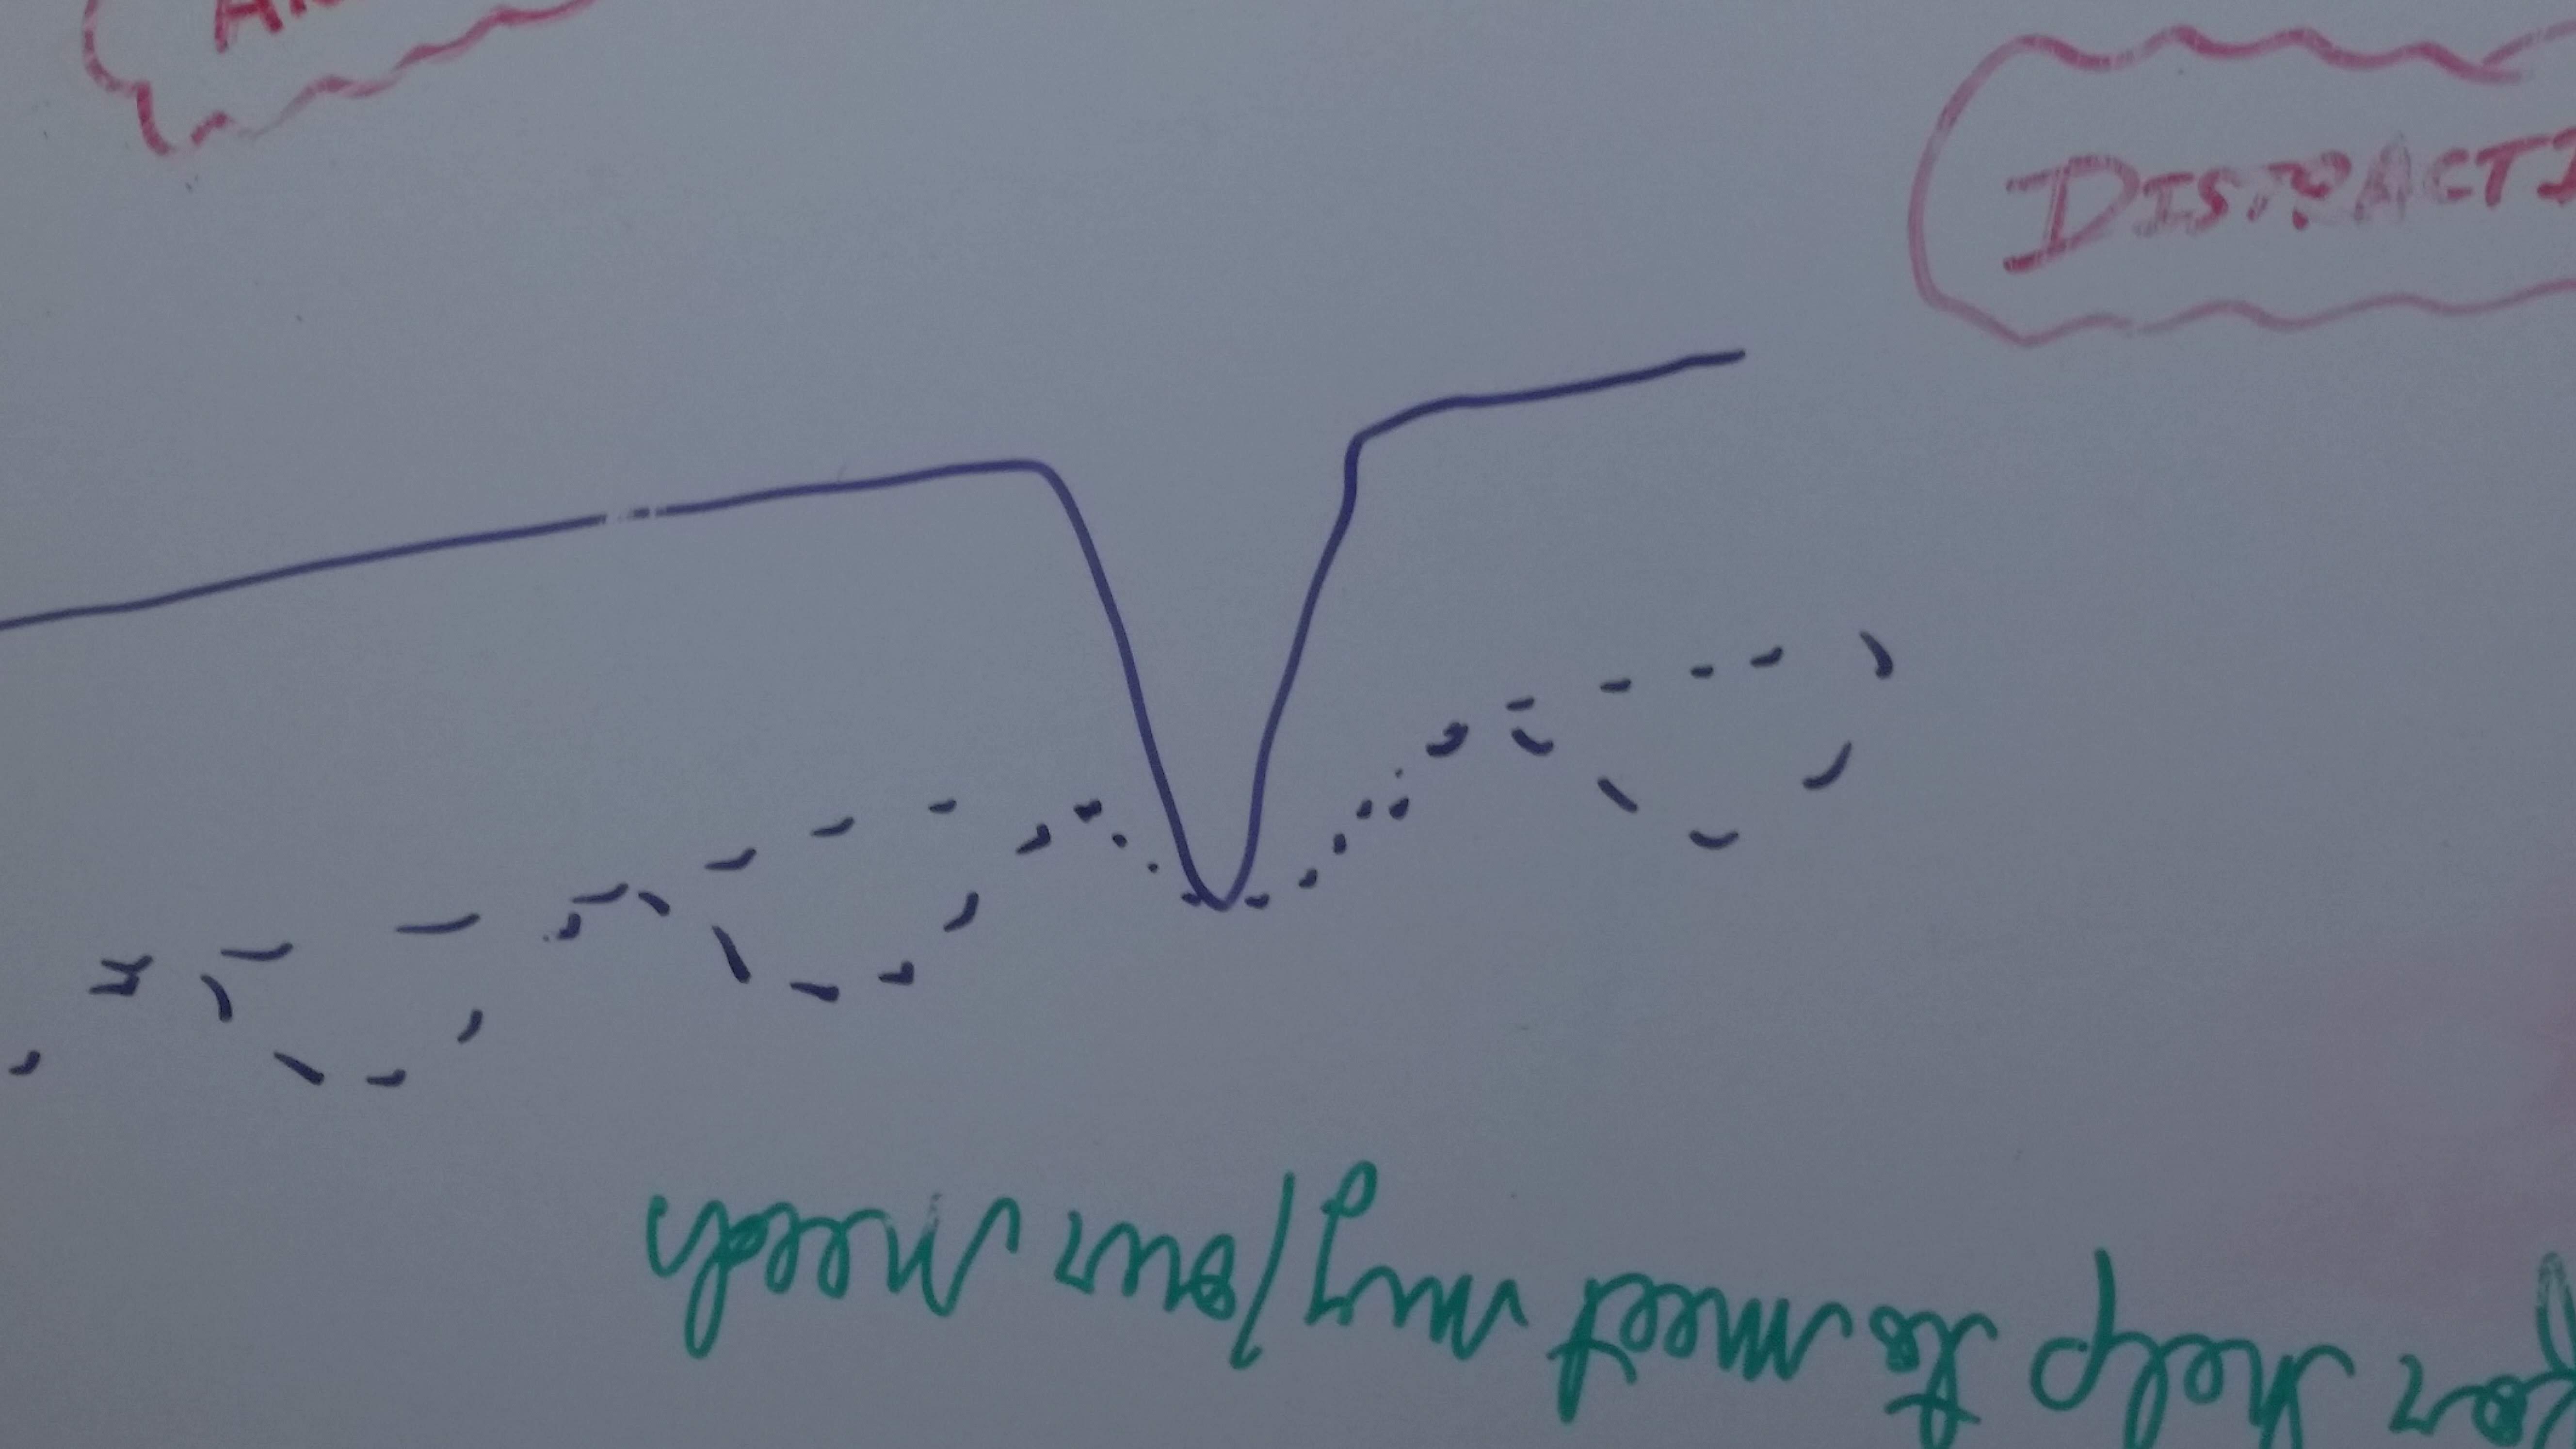 DISTRACTI
help to meet my/our needs